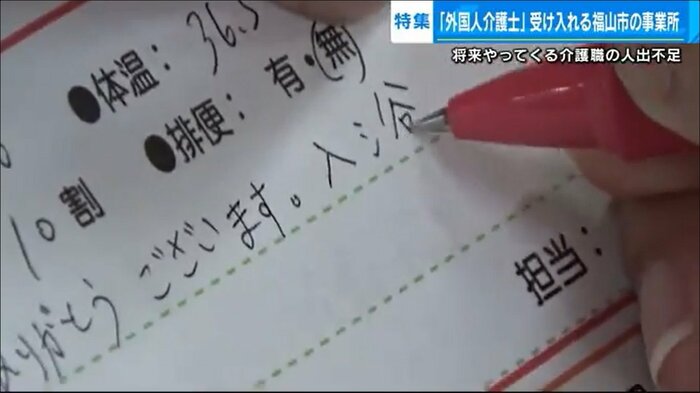 特集 「外国人介護士」受け入れる福山市の事業所
将来やってくる介護職の人出不足
●体温： 36.5
●排便： 有・無
10割
ありがとうございます。入浴
担当：